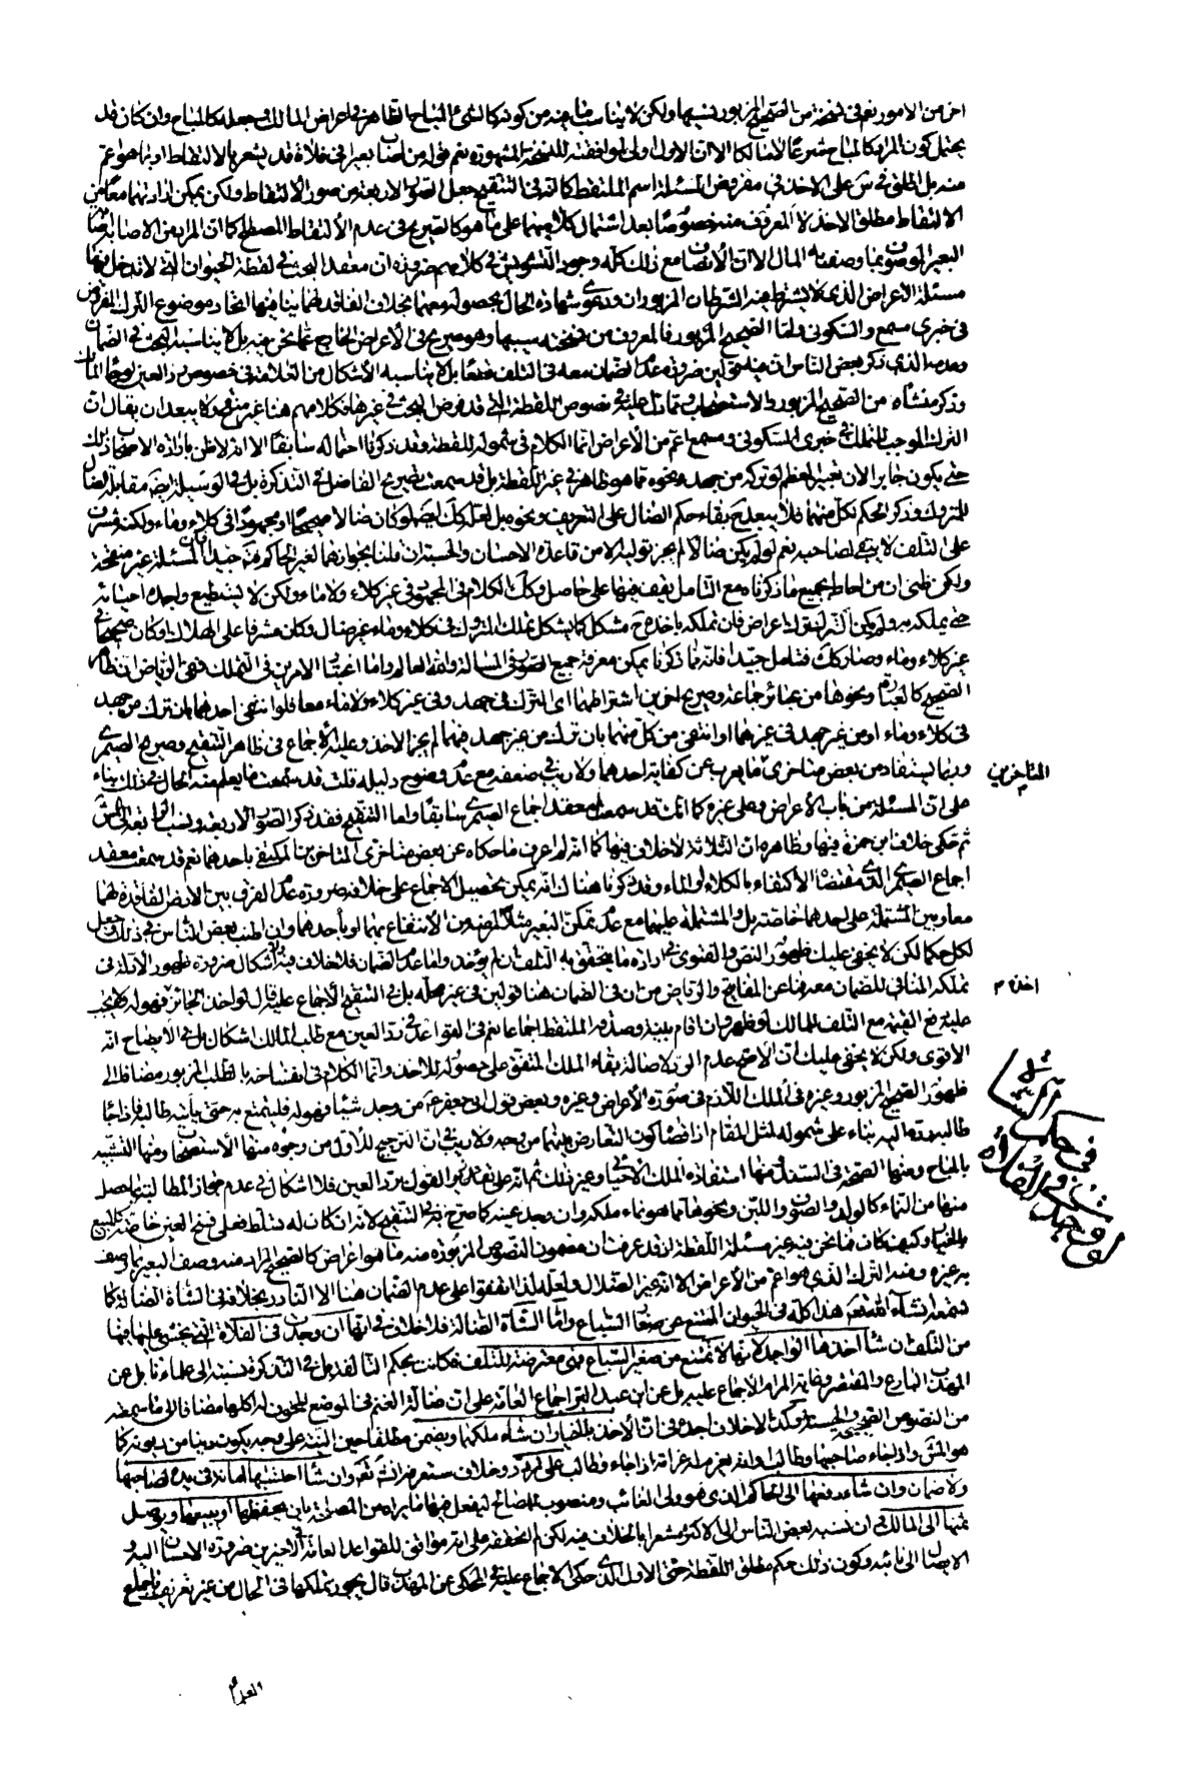 اخر من الامور نعم فى نسخة من الصحيح المزبور نسيها ولكن لا يناسب ما فيه من كونها كالشئ المباح الظاهر فى اعراض المالك وجعله كالمباح وان كان قد
يحتمل كون المراد كالمباح شرعا لا مالكا الا ان الاول اولى لموافقته للنسخة المشهورة نعم قوله من اصاب بعيرا فى فلاة قد يشعر بالالتقاط او بما هو اعم
منه بل اطلق فى على الاخذ فى مفروض المسئلة اسم الملتقط كما انه فى التنقيح جعل الصور الاربعة من صور الالتقاط ولكن يمكن ارادتهما معا من
الالتقاط مطلق الاخذ لا المعروف منه خصوصا بعد اشتمال كلاميهما على ما هو كالصريح فى عدم الالتقاط المصطلح كما ان المراد من الاصابة
البعير الموصوف بما وصفناه المال الا ان الانصاف مع ذلك كله وجود التشويش فى كلامهم ضرورة ان معقد البحث فى لقطة الحيوان التى لا تدخل فيها
مسئلة الاعراض الذى لا يشترط فيه الشرطان المزبوران ودعوى شهادة الحال بحصوله معهما بخلاف الفاقد لهما ينافيها اتحاد موضوع الترك المفروض
فى خبرى مسمع والسكونى واما الصحيح المزبور فالمعروف من نسخته نسيها وهو صريح فى الاعراض الخارج عما نحن فيه بل لا يناسبه البحث فى الضمان
وعدمه الذى ذكر بعض الناس ان فيه قولين ضرورة عدم الضمان معه فى التلف قطعا بل لا يناسبه الاشكال من العلامة فى خصوص رد العين لو جاء المالك
وذكر منشأه من الصحيح المزبور والاستصحاب فى خصوص اللقطة التى قد فرض البحث فى غيرها فكلامهم هنا غير منقح كما لا يبعد ان يقال ان
الترك الموجب للتملك فى خبرى السكونى ومسمع اعم من الاعراض انما الكلام فى شموله للقطة وقد ذكرنا احتماله سابقا الا انه لا ظن بارادة الاصحاب ذلك
حتى يكون جابرا لان تعبير المعظم لو تركه من جهد ونحوه مما هو ظاهر فى غير اللقطة بل قد سمعت تصريح الفاضل فى التذكرة بل فى الوسيلة ايضا مقابلة الضال
للمتروك وذكر الحكم لكل منهما فلا يبعد ح بقاء حكم الضال على التعريف ونحوه بل لعله كك لو كان ضالا صحيحا او مجهودا فى كلاء وماء ولكنه مشرف
على التلف لا يبقى لصاحبه نعم لو لم يكن ضالا لم يجز توليه الا من قاعدة الاحسان والحسبة ان قلنا بجوازهما لغير الحاكم فتأمل جيدا فان المسئلة غير منقحة
ولكن ظنى ان من احاط بجميع ما ذكرناه مع التأمل يقف فيها على حاصل وكك الكلام فى المجهود فى غير كلاء ولا ماء ولكن لا يستطيع واجده احيائه
حتى يملكه به ولم يكن الترك اعراض فان تملكه باخذه ح مشكل كما يشكل تملك المتروك فى كلاء وماء غير ضال وكان مشرفا على الهلاك او كان صحيحا فى
غير كلاء وماء وصار كك فتأمل جيدا فانه مما ذكرنا يمكن معرفة جميع الصور فى المسالة والله العالم واما اعتبار الامرين فى التملك ففى الرياض ان ظاهر
الصحيح كالعبارة ونحوها من عبائر جماعة وصريح اخرين اشتراطهما اى الترك فى جهد وفى غير كلاء ولا ماء معا فلو انتفى احدهما بان ترك من جهد
فى كلاء وماء او من غير جهد فى غيرهما او انتفى من كل منهما بان ترك من غير جهد فيهما لم يجز الاخذ وعليه الاجماع فى ظاهر التنقيح وصريح الصيمرى
وربما يستفاد من بعض متاخرى ما يعرب عن كفاية احدهما ولا ريب فى ضعفه مع عدم وضوح دليله قلت قد سمعت ما يعلم منه الحال فى ذلك بناء
المتاخرين
على ان المسئلة من باب الاعراض وعلى غيره كما انك قد سمعت معقد اجماع الصيمرى سابقا واما التنقيح فقد ذكر الصور الاربعة
ثم حكى خلاف ابن حمزة فيها وظاهره ان الثلاثة لا خلاف فيها كما انه لم اعرف ما حكاه عن بعض متاخرى المتاخرين المكتفى باحدهما نعم قد سمعت معقد
اجماع الصيمرى الذى مقتضاه الاكتفاء بالكلاء او الماء وقد ذكرنا هناك انه يمكن تحصيل الاجماع على خلافه ضرورة عدم الفرق بين الارض الفاقدة لهما
معا وبين المشتملة على احدهما خاصة بل والمشتملة عليهما مع عدم تمكن البعير مثلا لمرضه من الانتفاع بهما او باحدهما وان اطنب بعض الناس فى ذلك وجعل
لكل حكما لكن لا يخفى عليك ظهور النص والفتوى فى ارادة ما يتحقق به التلف ان لم يؤخذ واما عدم الضمان فلا خلاف فيه ولا اشكال ضرورة ظهور الادلة فى
تملكه المنافى للضمان معه فما عن المفاتيح والرياض من ان فى الضمان هنا قولين فى غير محله بل فى التنقيح الاجماع عليه قال لو اخذه فى الجائز فهو له ولا يجب
اخذه م
عليه دفع القيمة مع التلف للمالك لو ظهر وان اقام بينة وصدقه الملتقط اجماعا نعم فى القواعد فى رد العين مع طلب المالك اشكال بل فى الايضاح انه
الاقوى ولكن لا يخفى عليك ان الاصح عدم الرد لاصالة بقاء الملك المتفق على حصوله للاخذ وانما الكلام فى انفساخه بالطلب المزبور مضافا الى
ظهور الصحيح المزبور وغيره فى الملك اللازم فى صورة الاعراض وغيره وبعض قول ابى جعفر ع من وجد شيئا فهو له فليتمتع به حتى ياتيه طالبه فاذا جاء
طالبه رده اليه بناء على شموله لمثل المقام اذ اقصاه كون التعارض بينهما من وجه ولا ريب فى ان الترجيح للاول من وجوه منها الاستصحاب ومنها التشبيه
بالمباح ومنها الصحة فى السند ومنها استفادة الملك الاحيائى وغير ذلك ثم انه على تقدير القول برد العين فلا اشكال فى عدم جواز المطالبة بما حصل
منها من النماء كالولد والصوف واللبن ونحوها مما هو نماء ملكه وان وجد عينه كما صرح به فى التنقيح لانه ان كان له تسلط فعلى فسخ العين خاصة كالبيع
بالخيار وكيف كان فما نحن فيه غير مسئلة اللقطة اذ قد عرفت ان مضمون النصوص المزبورة منه ما هو اعراض كالصحيح المراد منه وصف البعير بما وصف
به غيره ومنه الترك الذى هو اعم من الاعراض الا انه غير الضلال ولعله لذا اتفقوا على عدم الضمان هنا الا النادر بخلافه فى الشاة الضالة كما
تسمعه انشاء الله تعه هذا كله فى الحيوان الممتنع من صغار السباع واما الشاة الضالة فلا خلاف فى انها ان وجدت فى الفلاة التى يخشى عليها فيها
من التلف ان شاء اخذها الواجد لانها لا تمتنع من صغير السباع فهى معرضة للتلف فكانت بحكم التالف بل فى التذكرة نسبته الى علمائنا بل عن
المهذب البارع والمقتصر وغاية المرام الاجماع عليه بل عن ابن عبد البر اجماع العامة على ان ضالة الغنم فى الموضع المخوف له اكلها مضافا الى ما سمعته
من النصوص الصحيح والحسن وكذا لا خلاف اجده فى ان الاخذ بالخيار ان شاء ملكها ويضمن مطلقا حين النية على وجه يكون دينا من ديونه كما
هو المش او اذا جاء صاحبها وطالب او انه يغرم له غرامة اذا جاء وطالب على وخلاف ستعرف انشاء الله تعه وان شاء احتبسها امانة فى يده لصاحبها
ولا ضمان وان شاء دفعها الى الحاكم الذى هو ولى الغائب ومنصوب للمصالح ليفعل فيها ما يراه من المصلحة بان يحفظها او يبيعها ويوصل
ثمنها الى المالك ان نسبه بعض الناس الى الاكثر مشعرا بالخلاف فيه لكن لم نتحققه على انه موافق للقواعد العامة فى الاخيرين ضرورة الاحسان اليه و
الايصال الى نائبه وكون ذلك حكم مطلق اللقطة حتى الاول الذى حكى الاجماع عليه فى المحكى عن المهذب قال يجوز تملكها فى الحال من غير تعريف باجماع
فى حكم الشاة
لو وجدت فى الفلاة
العلماء